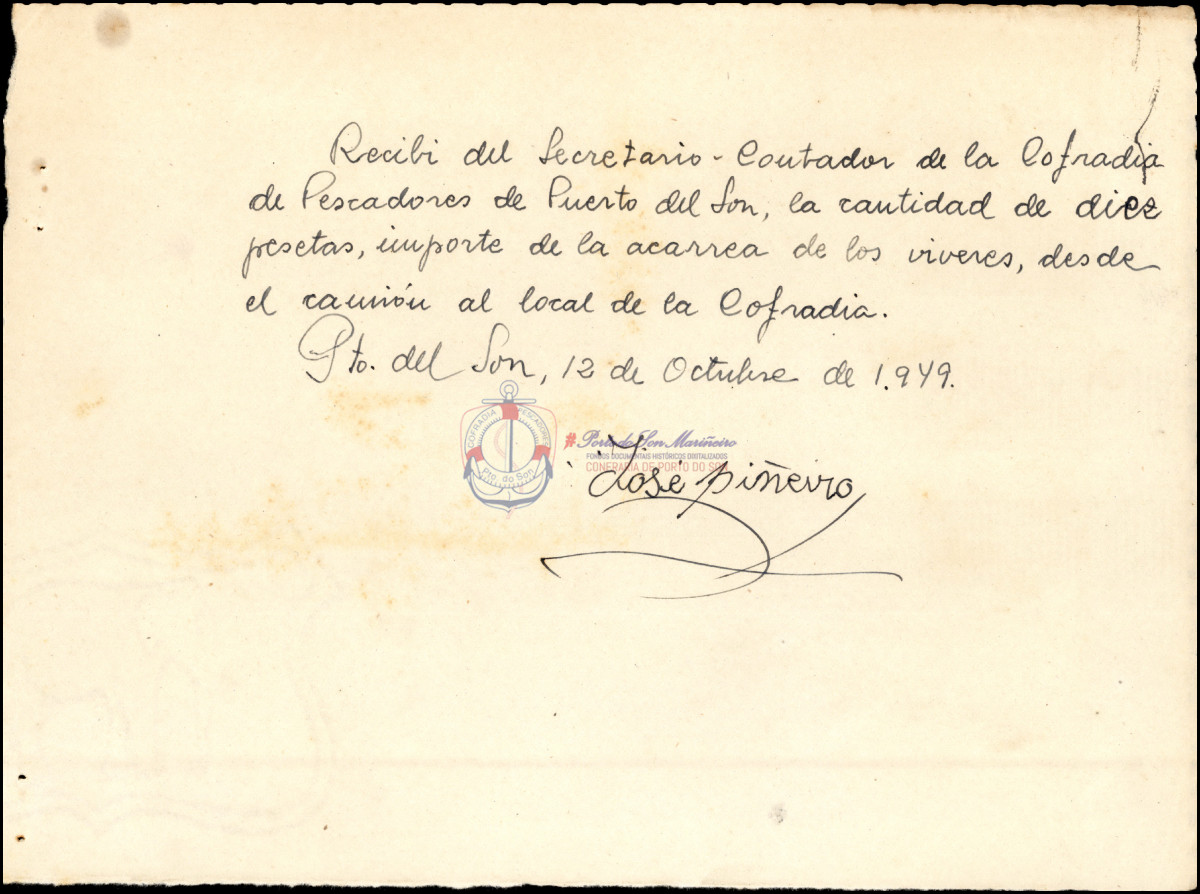 Recibi del Secretario-Contador de la Cofradia
de Pescadores de Puerto del Son, la cantidad de diez
pesetas, importe de la acarrea de los viveres, desde
el camión al local de la Cofradia.
Pto. del Son, 12 de Octubre de 1.949.
COFRADIA PESCADORES
Pto. do Son
# Porto do Son Mariñeiro
FONDOS DOCUMENTAIS HISTÓRICOS DIXITALIZADOS
CONFRARÍA DE PORTO DO SON
José piñeiro